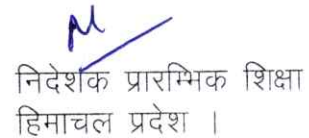 निदेशक प्रारम्भिक शिक्षा
हिमाचल प्रदेश ।